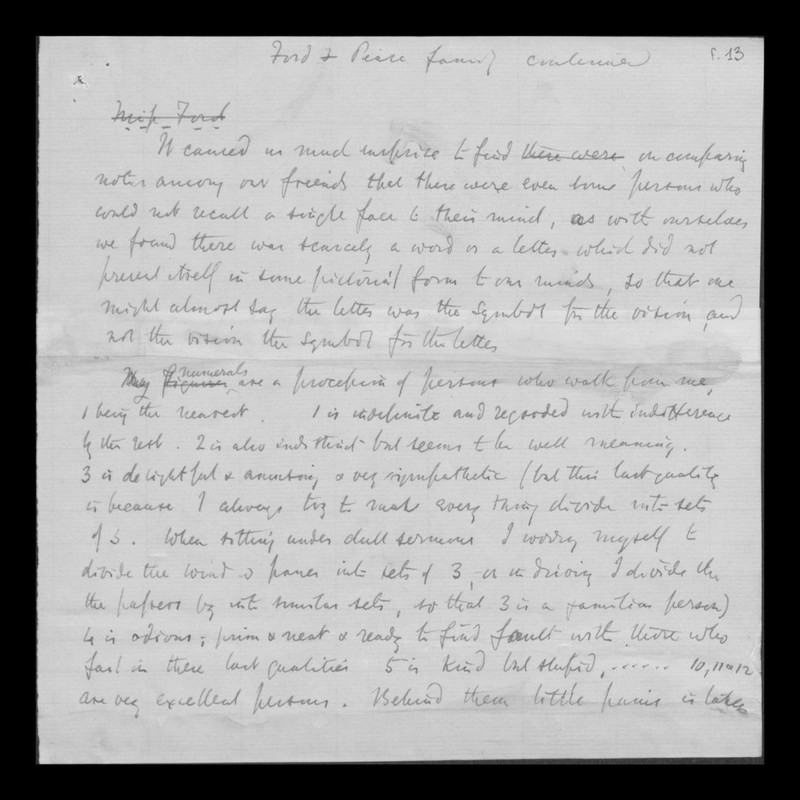 Ford & Pease family continued
f. 13
Miss Ford
It caused us much surprise to find there were on comparing
notes among our friends that there were even some persons who
could not recall a single face to their mind, as with ourselves
we found there was scarcely a word or a letter which did not
present itself in some pictorial form to our minds, so that one
might almost say the letter was the symbol for the vision, and
not the vision the symbol for the letter
numerals
My figures are a procession of persons who walk from me,
1 being the nearest. 1 is indefinite and regarded with indifference
by the rest. 2 is also indistinct but seems to be well meaning.
3 is delightful & amusing & very sympathetic (but this last quality
is because I always try to make every thing divide into sets
of 3. When sitting under dull sermons I worry myself to
divide the window panes into sets of 3, or in driving I divide the
the passers by into similar sets, so that 3 is a familiar person)
4 is odious; prim & neat & ready to find fault with those who
fail in these last qualities 5 is kind but stupid, ...... 10, 11 & 12
are very excellent persons. Behind them little pains is taken